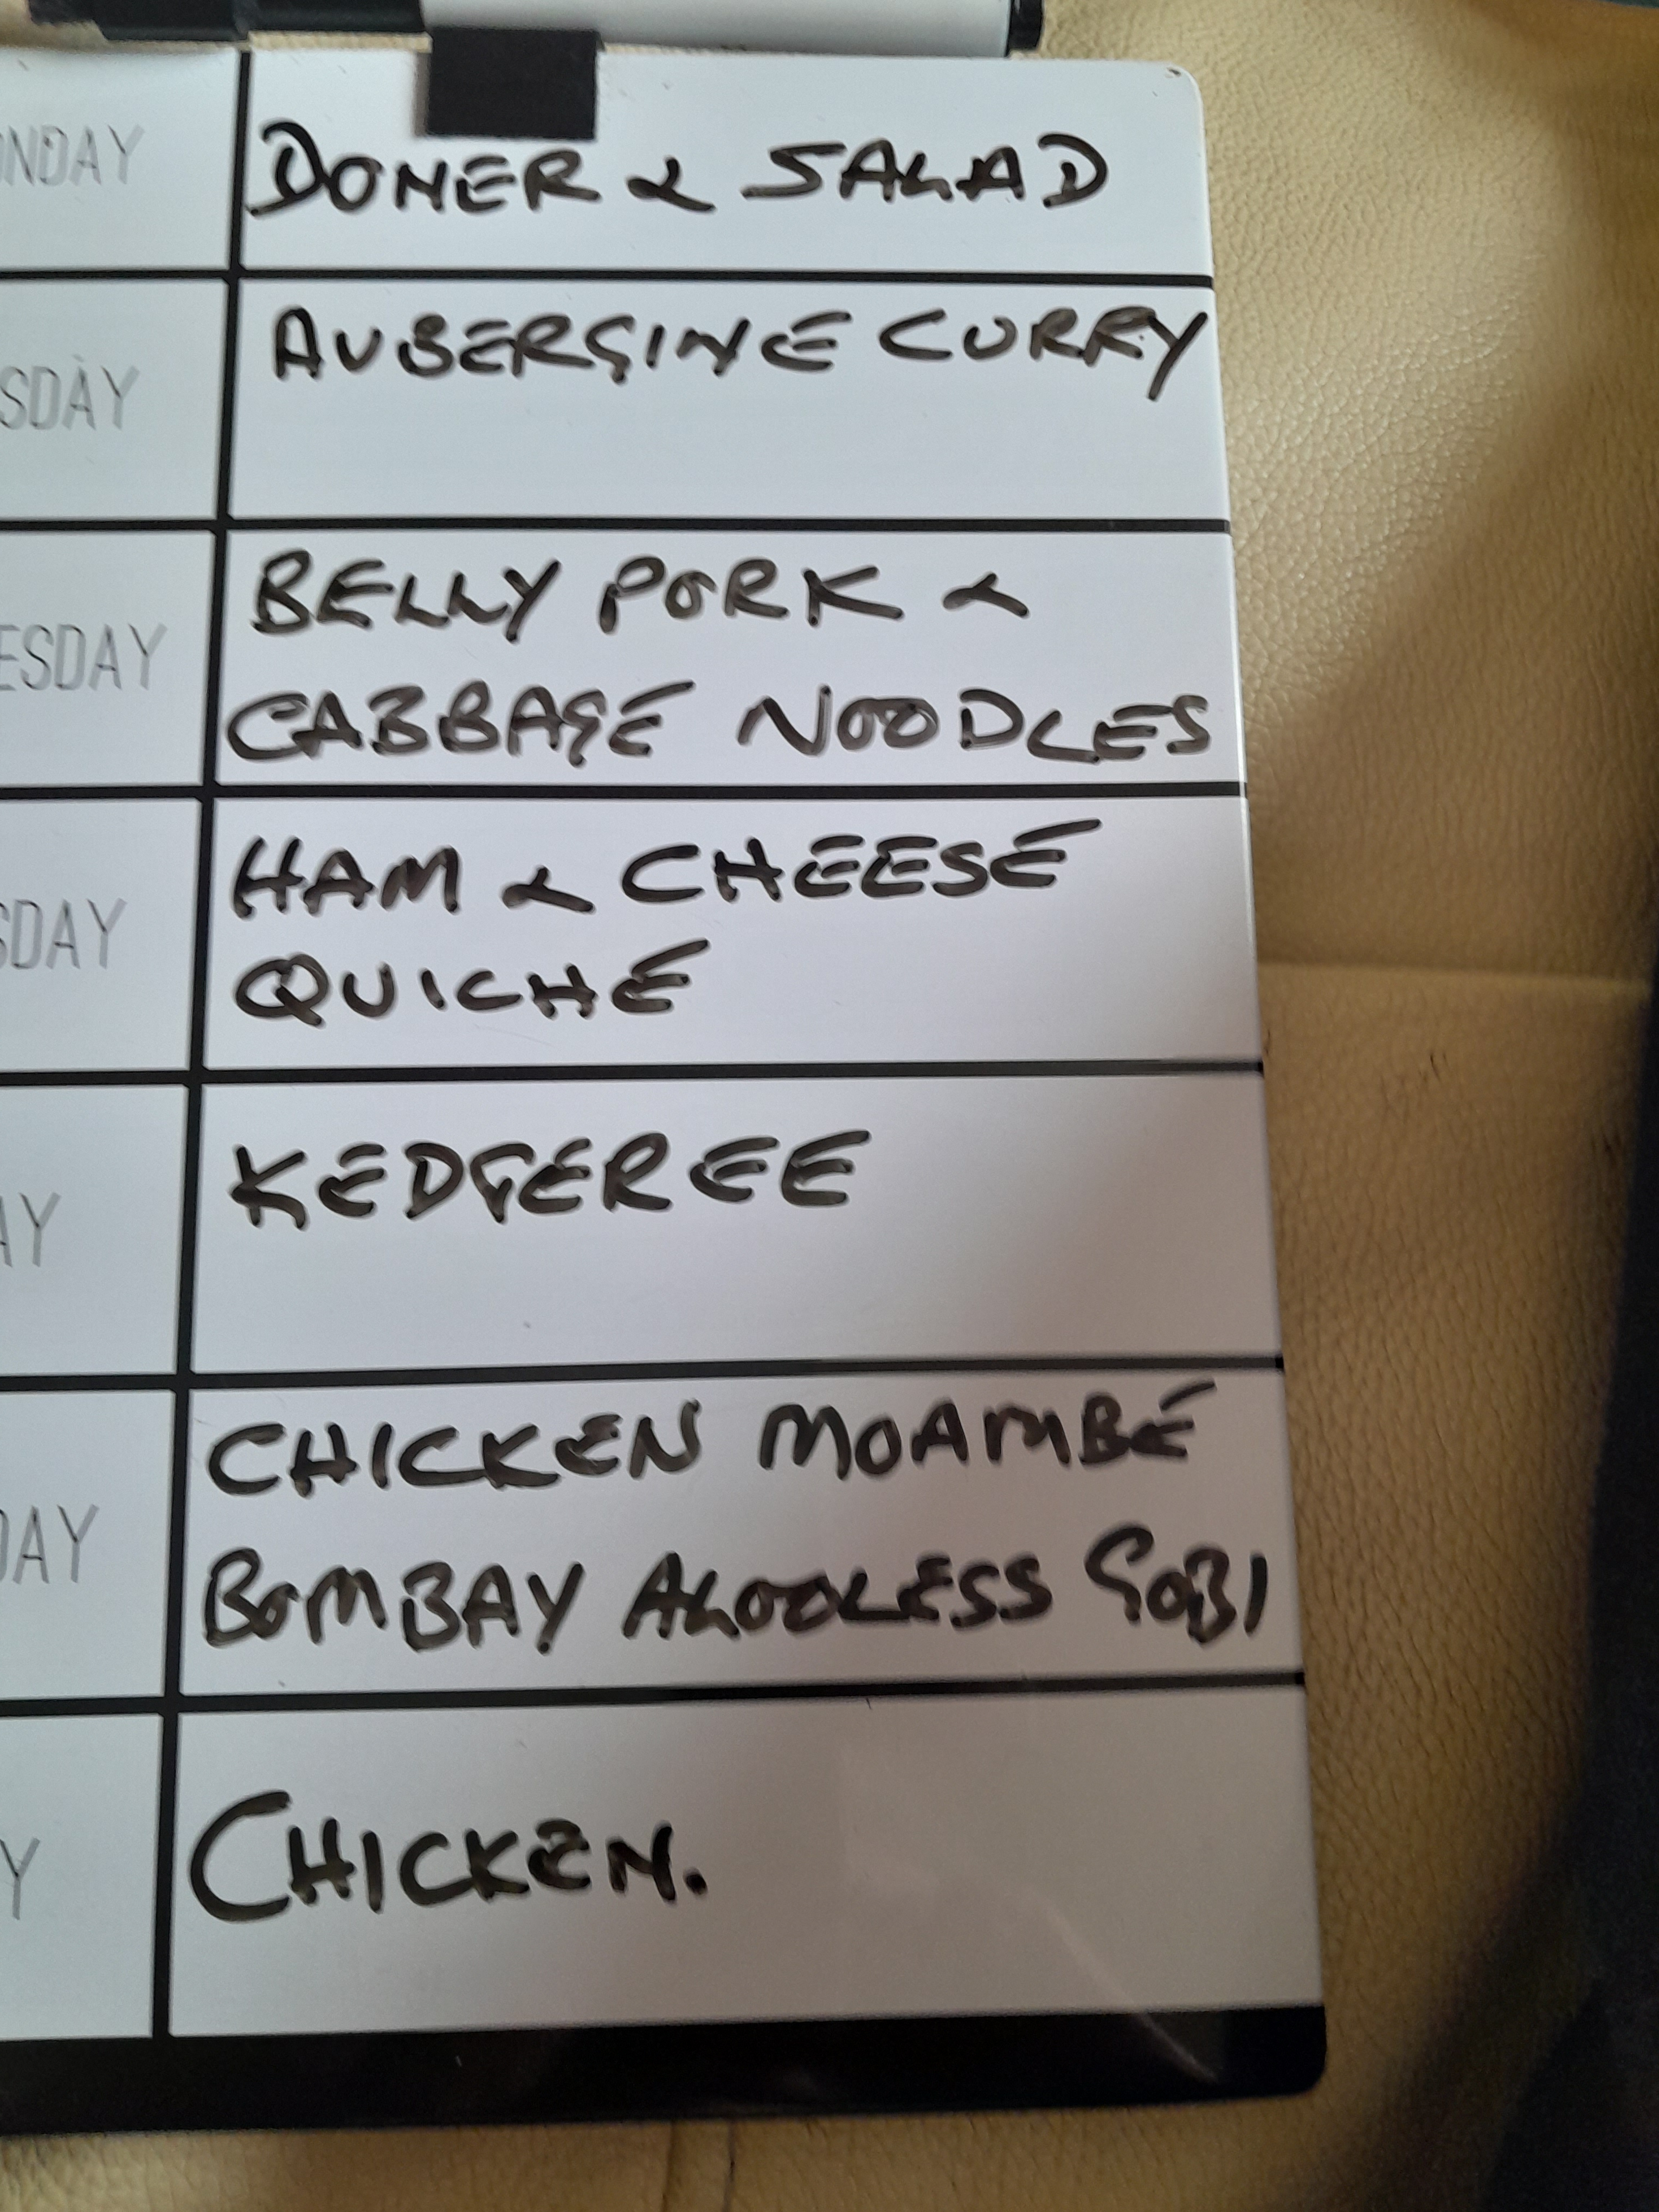 ONDAY
DONER & SALAD
SDAY
AUBERGINE CURRY
ESDAY
BELLY PORK &
CABBAGE NOODLES
SDAY
HAM & CHEESE
QUICHE
AY
KEDGEREE
DAY
CHICKEN MOAMBE
BOMBAY ALOOLESS GOBI
Y
CHICKEN.